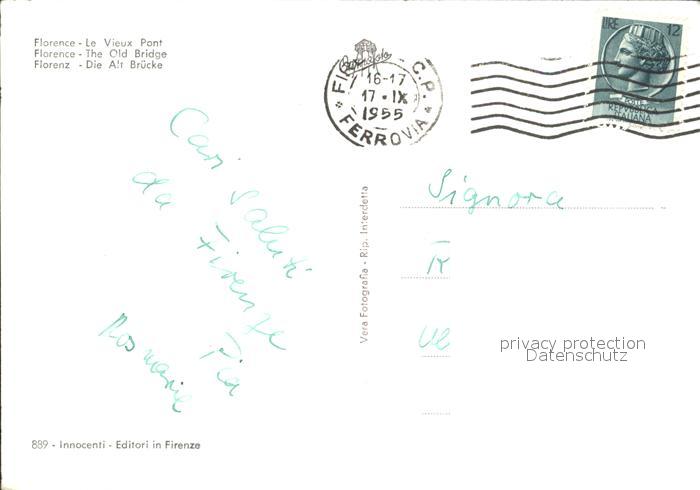 Florence - Le Vieux Pont
Florence - The Old Bridge
Florenz - Die Alt Brücke
C.P.
16-17
17·IX
1955
FERROVIA
LIRE 12
POSTE
REPUBBLICA
ITALIANA
Cari saluti
da Firenze
Pia
Rosmarie
Vera Fotografia - Rip. Interdetta
Signora
privacy protection
Datenschutz
889 - Innocenti - Editori in Firenze